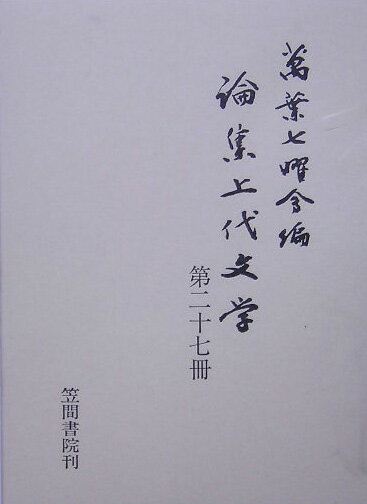 萬葉七曜会編
論集上代文学
第二十七冊
笠間書院刊